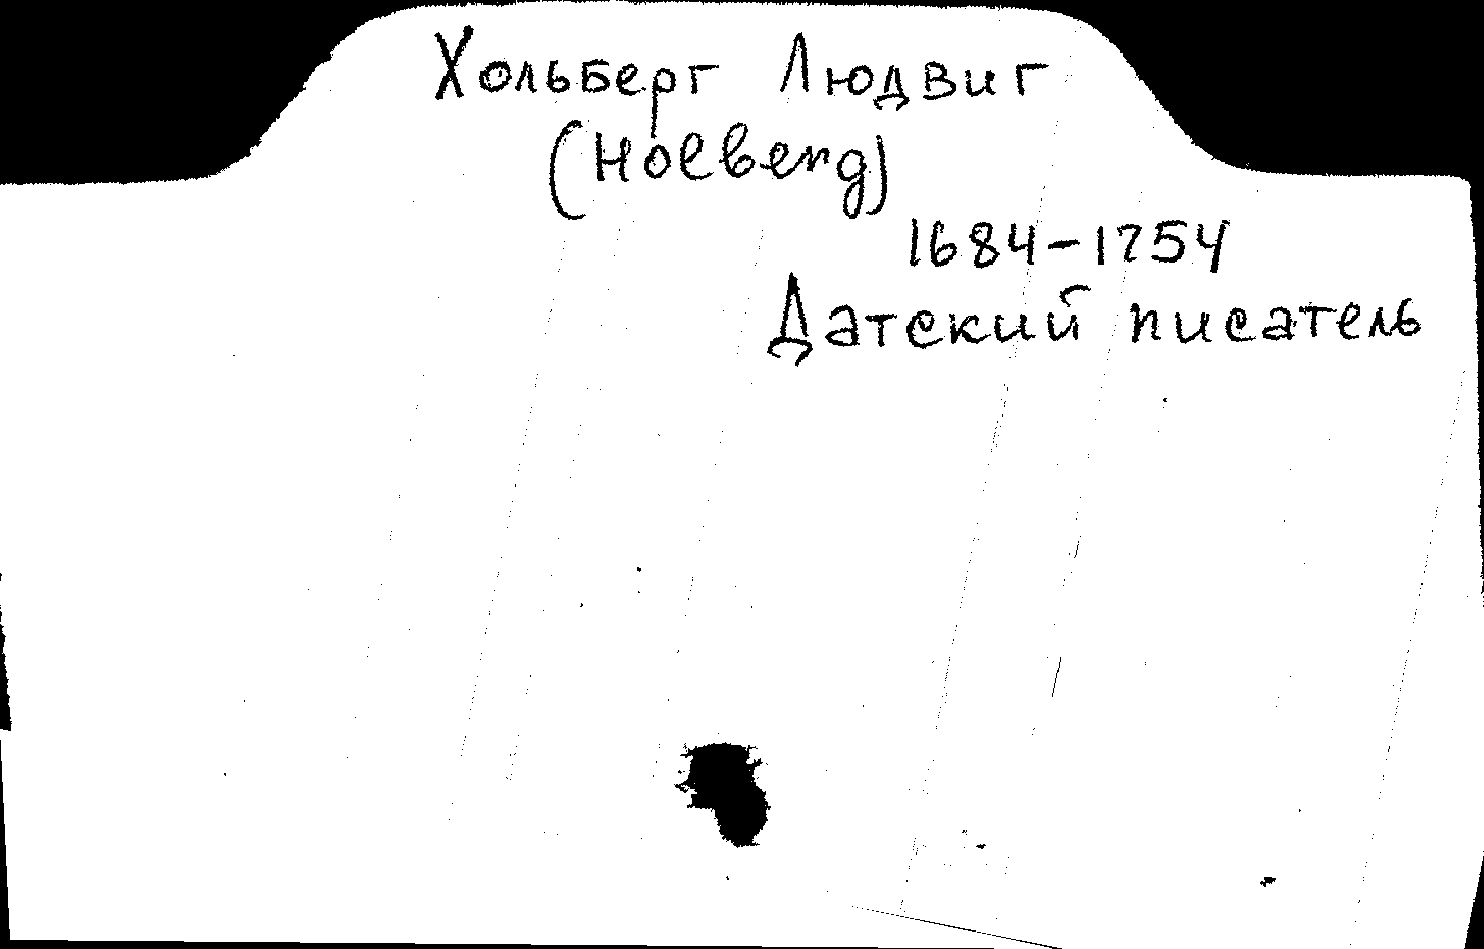 Хольберг Людвиг
(Holberg)
1684-1754
Датский писатель